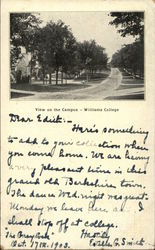 View on the Campus - Williams College
Dear Edick:-
Here's something
to add to your collection when
you come home. We are having
a very pleasant time in this
grand old Berkshire town.
The
Monday we leave here and I
shall stop off at college.
"The Greylock" Hastily
Oct. 17th. 1903. G. Smith.